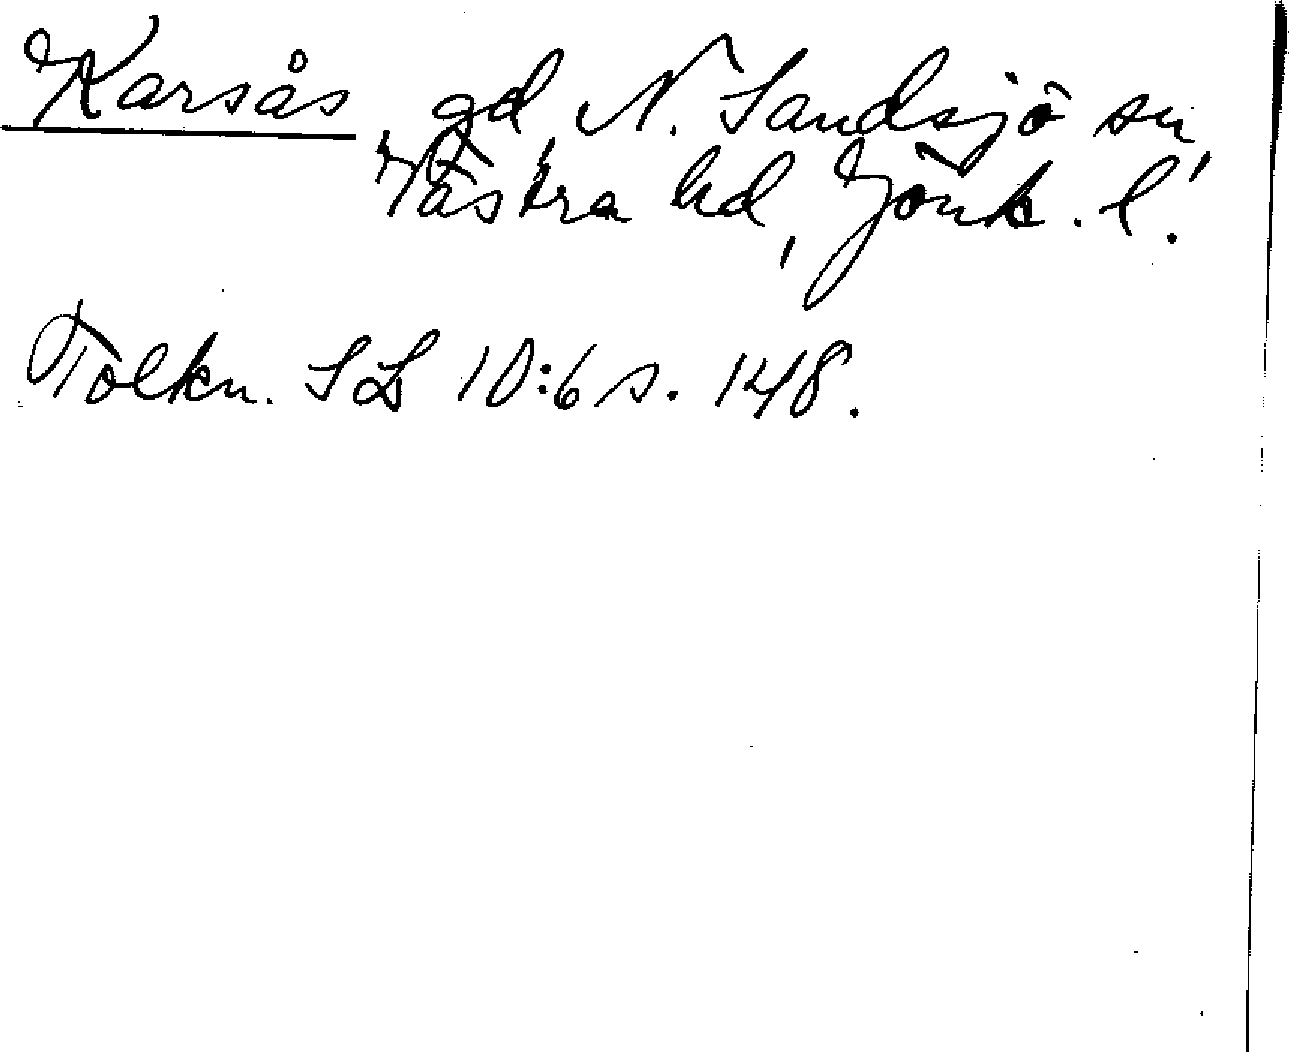 Karsås, gd, N. Sandsjö sn,
Västra hd, Jönk. l.
Tolkn. SL 10:6 s. 148.